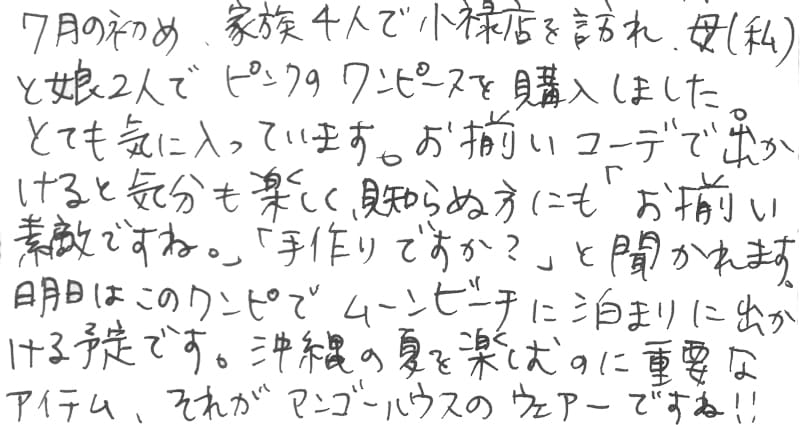 7月の初め、家族4人で小禄店を訪れ、母(私)
と娘2人で ピンクの ワンピースを購入しました。
とても気に入っています。お揃いコーデで出か
けると気分も楽しく、見知らぬ方にも「お揃い
素敵ですね。」「手作りですか?」と聞かれます。
明日はこのワンピで ムーンビーチに泊まりに出か
ける予定です。沖縄の夏を楽しむのに重要な
アイテム、それが マンゴーハウスの ウェアーですね!!